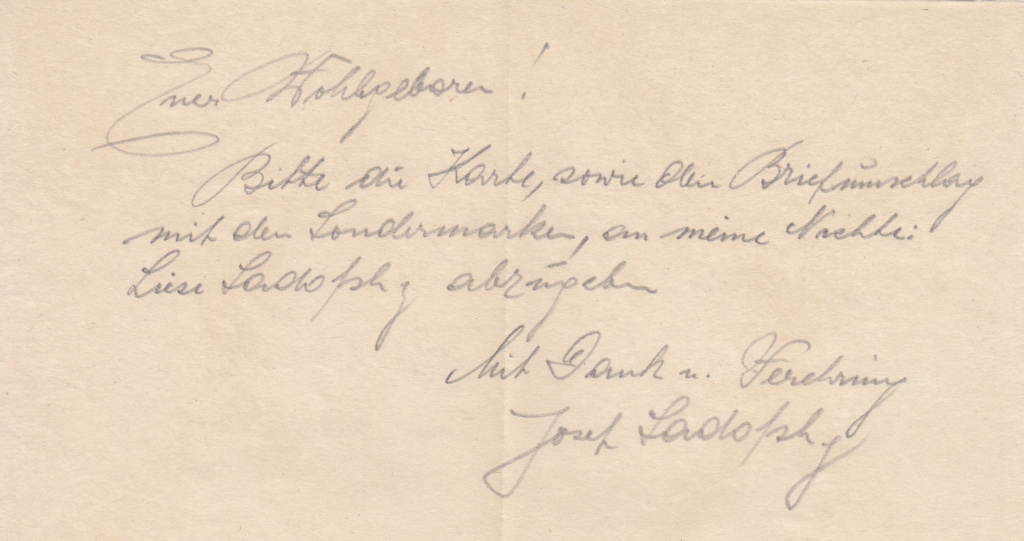 Euer Wohlgeboren!
Bitte die Karte, sowie den Briefumschlag
mit den Sondermarken, an meine Nichte:
Liese abzugeben
Mit Dank u. Verehrung
Josef